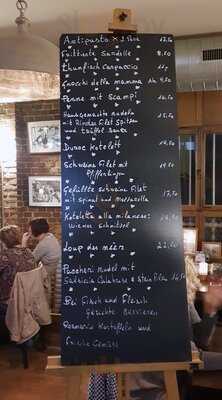 Antipasto x 1 Pers 12,50
Frittierte Sardelle 8,50
Thunfisch Carpaccio
Gnocchi della mamma 9,50
Penne mit Scampi
Hausgemachte nudeln
mit Rinder Filet Spitzen
und trüffel sauce
Schweine Filet mit
Pfifferlingen
Gefüllte schweine Filet
mit spinat und Mozzarella
Koteletta alla milanese:
Wiener Schnitzel
Loup de mér
Paccheri Nudel mit
Salsiccia Calabrese & Steinpilze
Bei Fisch und Fleisch
gerichte Servieren
Rosmarin Kartoffeln und
frische Gemüse